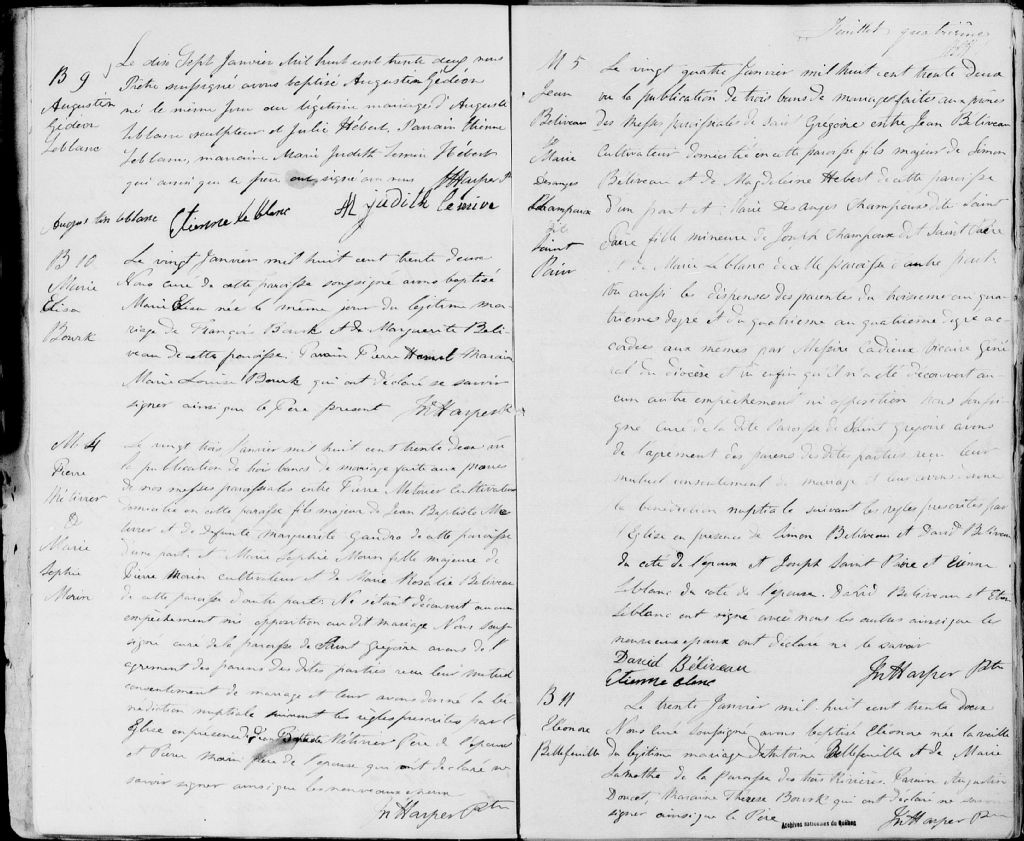 B 9
Augustin
Gédéon
Leblanc
Le dix Sept Janvier Mil huit cent trente deux nous
Prêtre soussigné avons baptisé Augustin Gédéon
né le même jour du légitime mariage d'Augustin
Leblanc sculpteur et Julie Hébert. Parain Etienne
Leblanc, maraine Marie Judith Lemire Hébert
qui ainsi que le père ont signé avec nous Jn Harper Ptre
Augustin leblanc Etienne leblanc M judith lemire
B 10
Marie
Elisa
Bourk
Le vingt Janvier mil huit cent trente deux
Nous curé de cette paroisse soussigné avons baptisé
Marie Elisa née le même jour du légitime ma-
riage de François Bourk et de Marguerite Beli-
veau de cette paroisse. Parain Pierre Hamel Maraine
Marie Louise Bourk qui ont déclaré ne savoir
signer ainsi que le Père présent Jn Harper Ptre
M. 4
Pierre
Métivier
&
Marie
Sophie
Morin
Le vingt trois Janvier mil huit cent trente deux vu
la publication de trois bancs de mariage faite aux prones
de nos messes paroissiales entre Pierre Metivier Cultivateur
domicilié en cette paroisse fils majeur de Jean Baptiste Mé-
tivier et de defunte marguerite de cette paroisse
d'une part, et Marie Sophie Morin fille majeure de
Pierre Morin cultivateur et de Marie Rosalie Beliveau
de cette paroisse d'autre part. Ne s'étant découvert aucun
empêchement ni opposition au dit mariage Nous sous-
signé curé de la paroisse de Saint Grégoire avons de l'
agrement des parens des dites parties reçu leur mutuel
consentement de mariage et leur avons donné la bé-
nédiction nuptiale suivant les règles prescrites par l'
Eglise en présence de Jean Baptiste Métivier Père de l'époux
et Pierre Morin père de l'épouse qui ont déclaré ne
savoir signer ainsi que les nouveaux époux
Jn Harper Ptre
Feuillet quatrième
M 5
Jean
Beliveau
&
Marie
Desanges
Champoux
dit
Saint
Pair
Le vingt quatre Janvier mil huit cent trente deux
vu la publication de trois bans de mariage faites aux prônes
des Messes paroissiales de Saint Grégoire entre Jean Beliveau
Cultivateur domicilié en cette paroisse fils majeur de Simon
Beliveau et de Magdeleine Hebert de cette paroisse
d'un part et Marie Des Anges Champoux dite Saint
Paire fille mineure de Joseph Champoux dit Saint Paire
et de Marie Leblanc de cette paroisse d'autre part
Vu aussi les dispenses des parentés du troisieme au qua-
trieme degré et du quatrieme au quatrieme degré ac-
cordées aux mêmes par Messire Cadieux Vicaire Géné-
ral du diocèse et vu enfin qu'il n'a été découvert au-
cun autre empechement ni opposition nous soussi-
gné curé de la dite Paroisse de Saint Grégoire avons
de l'agrement des parens des dites parties reçu leur
mutuel consentement de mariage et leur avons donné
la bénédiction nuptiale suivant les règles prescrites par
l'Eglise en presence de Simon Beliveau et David Beliveau
du coté de l'époux et Joseph Saint Paire et Etienne
Leblanc du coté de l'épouse. David Beliveau et Etienne
Leblanc ont signé avec nous les autres ainsi que les
nouveaux époux ont déclaré ne le savoir
David Béliveau
Etienne leblanc Jn Harper Ptre
B 11
Eléonore
Bellefeuille
Le trente Janvier mil huit cent trente deux
Nous Curé soussigné avons baptisé Eléonore née la veille
du légitime mariage de Antoine Bellefeuille et de Marie
Lamothe de la Paroisse des trois Rivières, Parain Augustin
Doucet, Maraine Thérese Bourk qui ont déclaré ne savoir
signer ainsi que le Père Jn Harper Ptre
Archives nationales du Québec